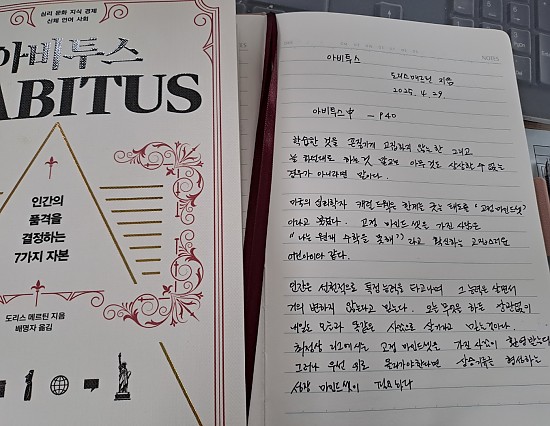 심리 문화 지식 경제
신체 언어 사회
아비투스
ABITUS
인간의
품격을
결정하는
7가지 자본
도리스 메르틴 지음
배명자 옮김
NOTES
아비투스
도리스메르틴 지음
2025. 4. 29
아비투스 中 - P40
학습한 것을 끈질기게 고집하지 않는 한 그리고
늘 하던대로 하는것 말고는 아무 것도 상상할 수 없는
경우가 아니라면 말이다.
미국의 심리학자 캐럴 드웩은 한계를 긋는 태도를 "고정 마인드셋"
이라고 불렀다. 고정 마인드 셋을 가진 사람은
"나는 원래 수학을 못해" 라고 확신하는 고집스러운
어린아이와 같다.
인간은 선천적으로 특정 능력을 타고나며 그 능력은 살면서
거의 변하지 않는다고 믿는다. 오늘 무엇을 하든 상관없이
내일도 오늘과 똑같은 사람으로 살거라고 말하는것이다.
최정상 리그에서는 고정 마인드셋을 가진 사람이 환영 받는다
그러나 우선 위로 올라가야한다면 상승기류를 형성하는
성장 마인드셋이 필요하다